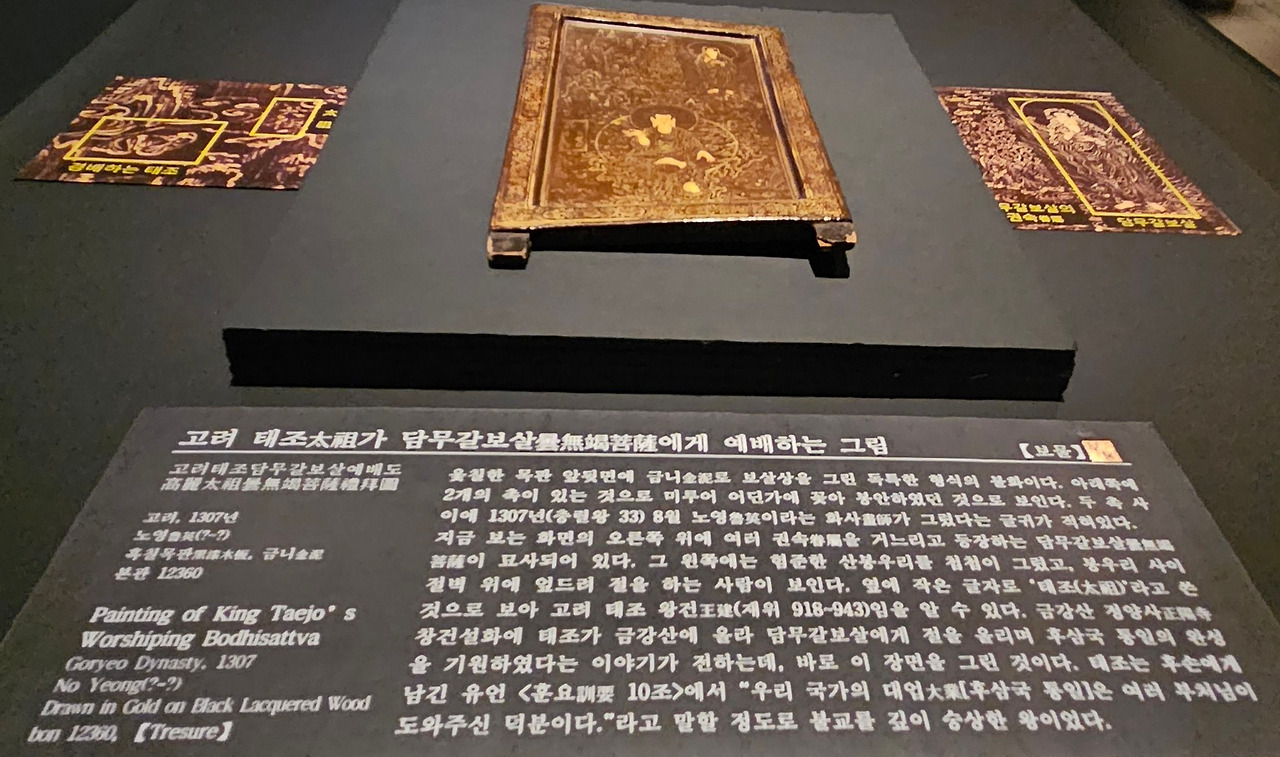 太祖
경배하는 태조
무갈보살의
권속眷屬
담무갈보살
고려 태조太祖가 담무갈보살曇無竭菩薩에게 예배하는 그림 【보물】
고려태조담무갈보살예배도
高麗太祖曇無竭菩薩禮拜圖
고려, 1307년
노영魯英(?~?)
흑칠목판黑漆木板, 금니金泥
본관 12360
Painting of King Taejo's
Worshiping Bodhisattva
Goryeo Dynasty, 1307
No Yeong(?~?)
Drawn in Gold on Black Lacquered Wood
bon 12360, 【Tresure】
옻칠한 목판 앞뒷면에 금니金泥로 보살상을 그린 독특한 형식의 불화이다. 아래쪽에
2개의 촉이 있는 것으로 미루어 어딘가에 꽂아 봉안하였던 것으로 보인다. 두 촉 사
이에 1307년(충렬왕 33) 8월 노영魯英이라는 화사畫師가 그렸다는 글귀가 적혀있다.
지금 보는 화면의 오른쪽 위에 여러 권속眷屬을 거느리고 등장하는 담무갈보살曇無竭
菩薩이 묘사되어 있다. 그 왼쪽에는 험준한 산봉우리를 첩첩이 그렸고, 봉우리 사이
절벽 위에 엎드려 절을 하는 사람이 보인다. 옆에 작은 글자로 '태조(太祖)'라고 쓴
것으로 보아 고려 태조 왕건王建(재위 918~943)임을 알 수 있다. 금강산 정양사正陽寺
창건설화에 태조가 금강산에 올라 담무갈보살에게 절을 올리며 후삼국 통일의 완성
을 기원하였다는 이야기가 전하는데, 바로 이 장면을 그린 것이다. 태조는 후손에게
남긴 유언 <훈요訓要 10조>에서 "우리 국가의 대업大業[후삼국 통일]은 여러 부처님이
도와주신 덕분이다."라고 말할 정도로 불교를 깊이 숭상한 왕이었다.